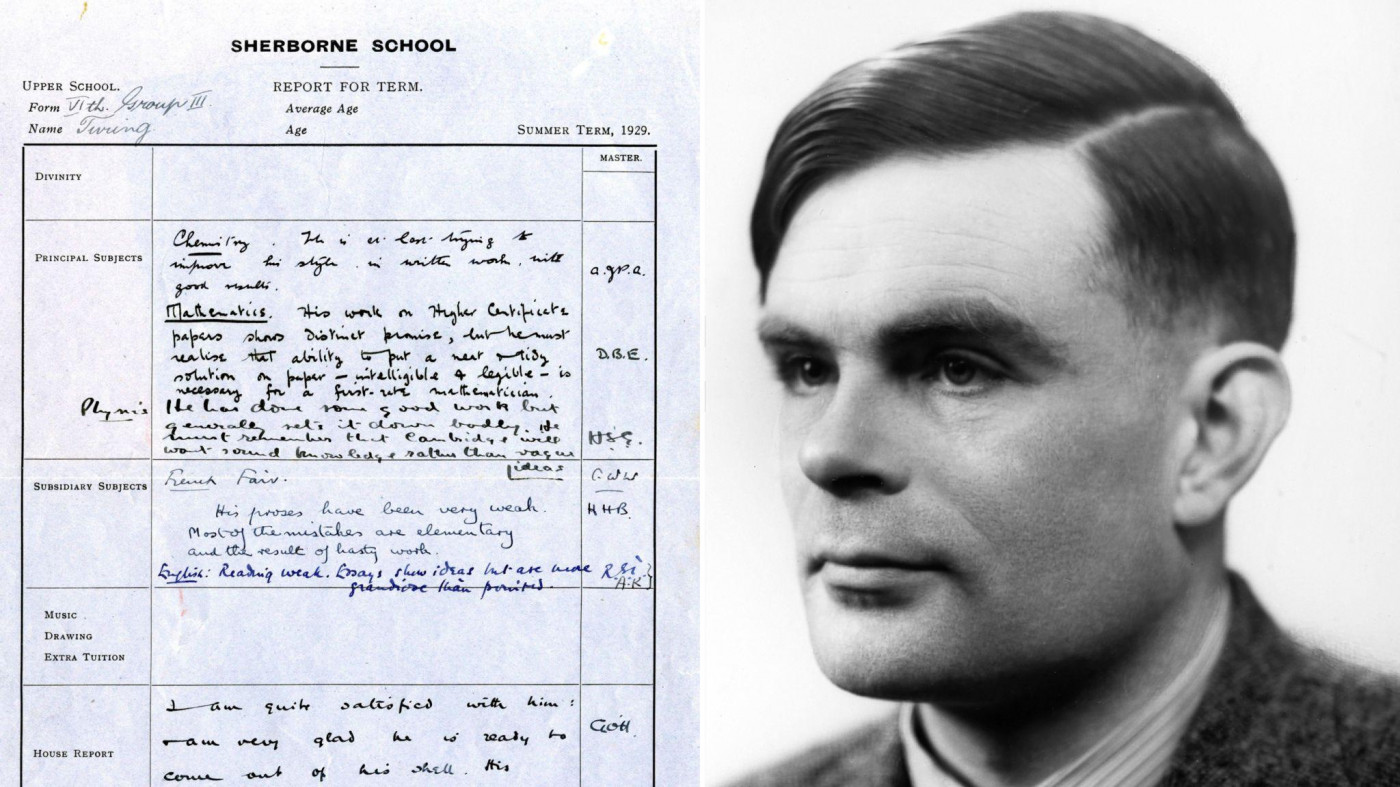 SHERBORNE SCHOOL
UPPER SCHOOL.
REPORT FOR TERM.
Form VIth. Group III.
Average Age
Name Turing
Age
SUMMER TERM, 1929.
MASTER.
DIVINITY
PRINCIPAL SUBJECTS
Chemistry. He is at last trying to
improve his style in written work, with
good results.
A.J.P.A.
Mathematics. His work on Higher Certificate
papers shows distinct promise, but he must
realise that ability to put a neat & tidy
solution on paper – intelligible & legible – is
necessary for a first-rate mathematician.
D.B.E.
Physics He has done some good work but
generally sets it down badly. He
must remember that Cambridge will
want sound knowledge rather than vague
ideas
H.S.G.
SUBSIDIARY SUBJECTS
French Fair.
His proses have been very weak.
Most of the mistakes are elementary
and the result of hasty work.
H H B.
English: Reading weak. Essays show ideas but are more
grandiose than
A.K
MUSIC
DRAWING
EXTRA TUITION
HOUSE REPORT
I am quite satisfied with him:
I am very glad he is ready to
come out of his shell. His
GO'H.